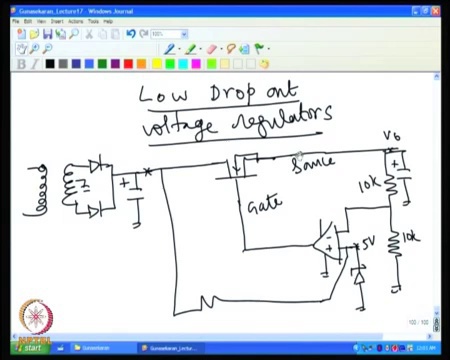 Gunasekaran_Lecture17 - Windows Journal
File Edit View Insert Actions Tools Help
100%
Low Drop out
voltage regulators
Vo
Source
10k
Gate
5V
10k
100 / 100
NPTEL
start
Gunasekaran
Gunasekaran_Lectur...